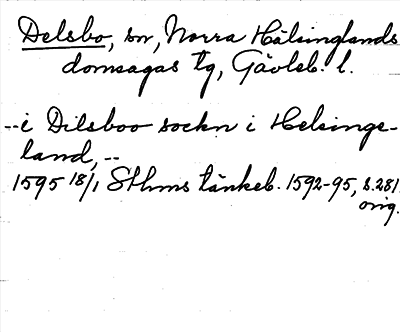 Delsbo, sn, Norra Hälsinglands
domsagas tg, Gävleb. l.
--i Dilsboo sockn i Helsinge-
land,--
1595 18/1 Sthms tänkeb. 1592-95, s.281
orig.